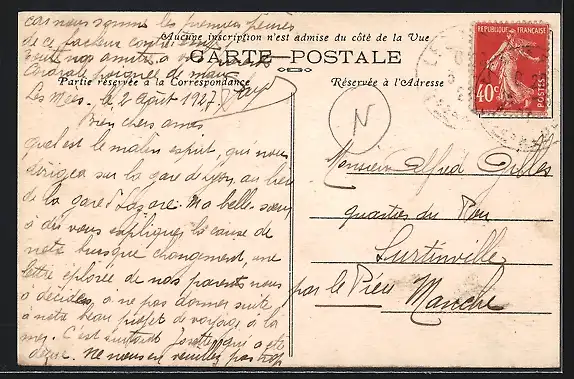 car nous sommes les premiers peines
de ce fâcheux contretemps
toute nos amitiés à vous
Cordiale poignée de main
Aucune inscription n'est admise du côté de la Vue
CARTE POSTALE
Partie réservée à la Correspondance
Réservée à l'Adresse
Les Mées, le 2 Août 1927
Bien chers amis
quel est le malin esprit, qui nous
dirigea sur la gare de Lyon au lieu
de la gare St Lazare. Ma belle sœur
a dû vous expliquer la cause de
notre brusque changement, une
lettre éplorée de nos parents nous
a décidés, à ne pas donner suite
à notre beau projet de voyage à la
mer. C'est surtout qui a été
déçue. Ne nous en veuillez pas trop
REPUBLIQUE FRANÇAISE
40c
POSTES
N
Monsieur Alfred Gilles
quartier du
Surtainville
par le Pieu
Manche